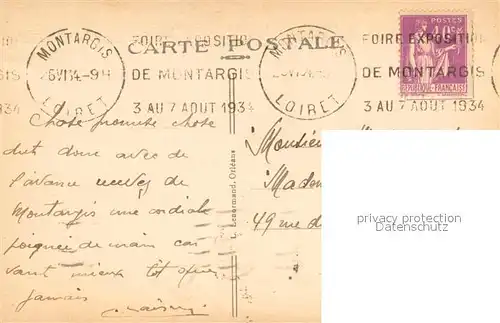 MONTARGIS
6VI34-9H
LOIRET
FOIRE EXPOSITION
DE MONTARGIS
3 AU 7 AOUT 1934
CARTE POSTALE
MONTARGIS
LOIRET
FOIRE EXPOSITION
DE MONTARGIS
3 AU 7 AOUT 1934
POSTES
RÉPUBLIQUE FRANÇAISE
Chose promise chose
doit donc avec de
l'avance recevez de
Montargis une cordiale
poignée de main car
vaut mieux tôt que
jamais
L. Lenormand, Orléans
Monsieur
Madam
49 rue d
privacy protection
Datenschutz